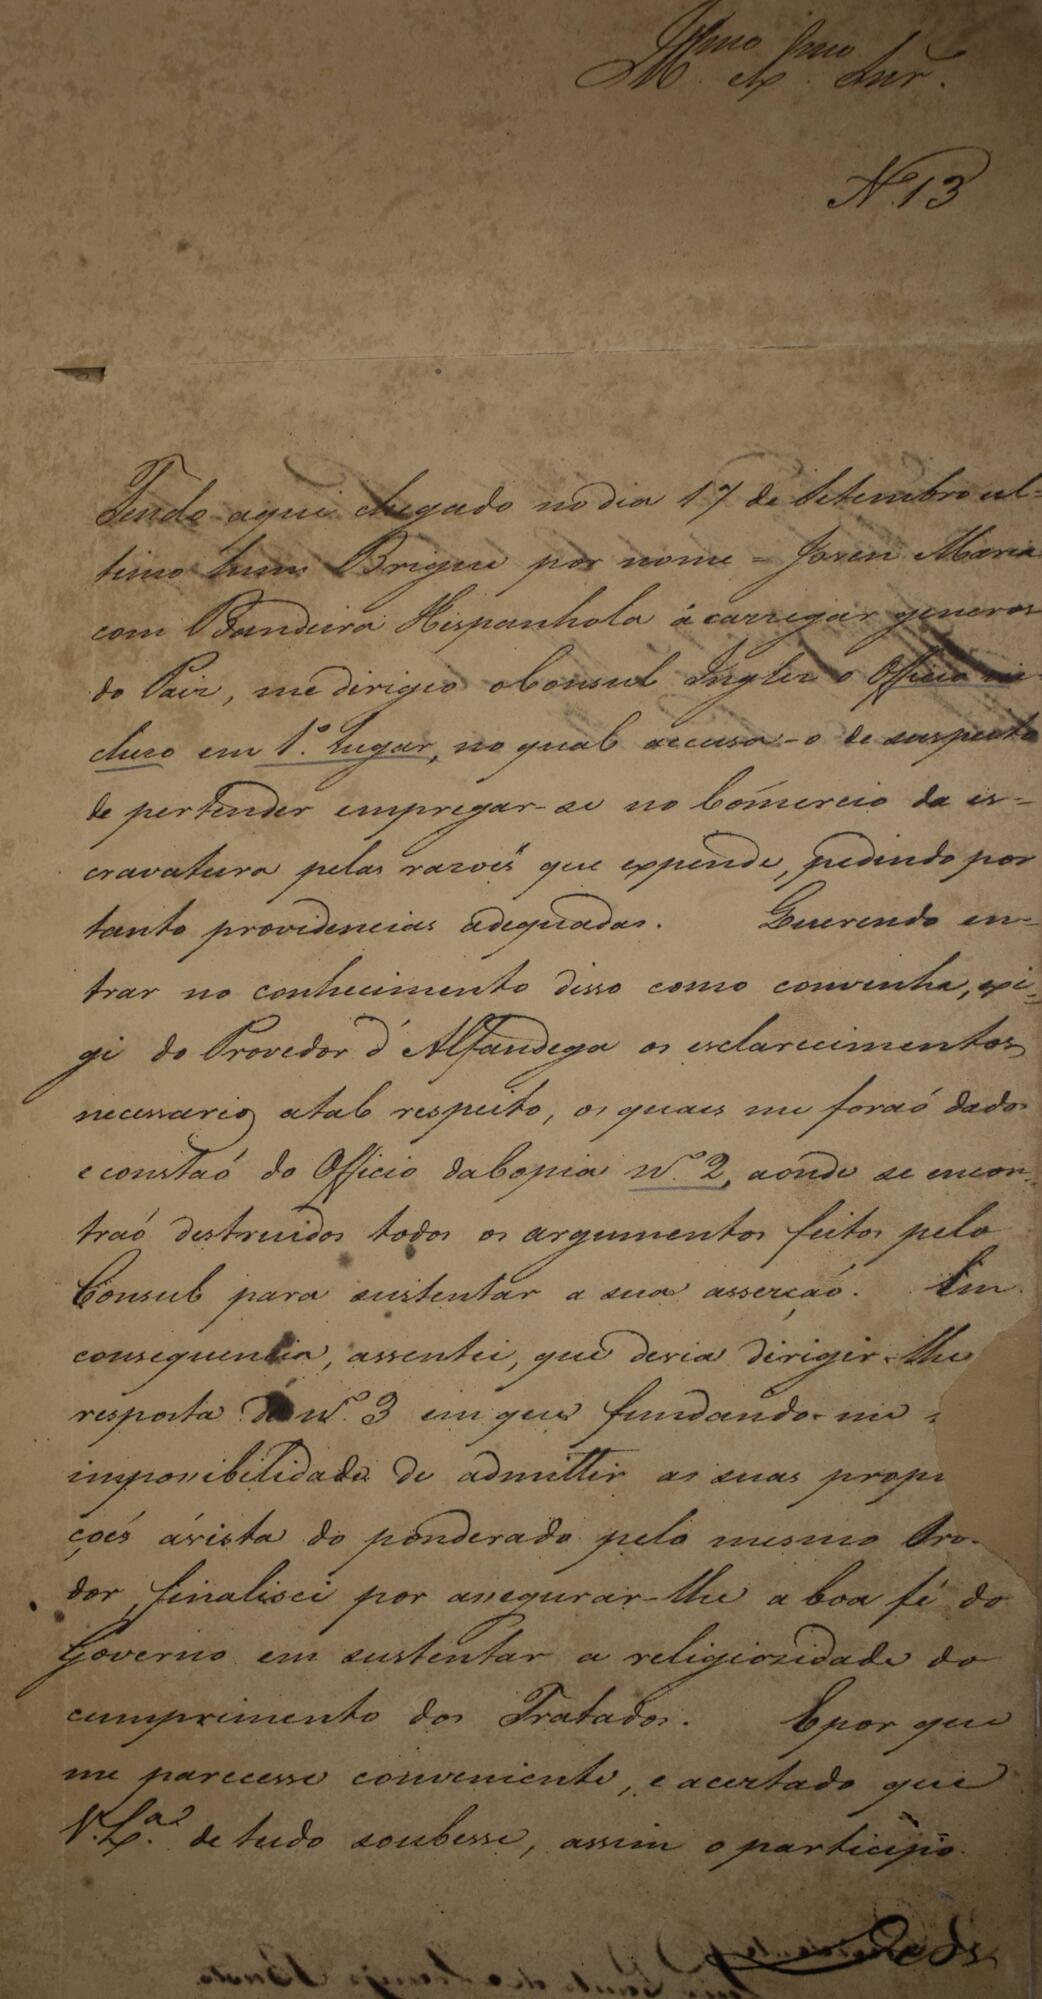 Illmo Exmo Snr.
N.13
Tendo aqui chegado no dia 17 de Setembro ul-
timo hum Brigue por nome = Joven Maria
com Bandeira Hispanhola á carregar generos
do Paiz, me dirigio o Consul Inglez o Officio in-
cluso em 1.º lugar, no qual accusa-o de suspeito
de pertender empregar-se no Cómercio da es-
cravatura pelas razoés que expende, pedindo por
tanto providencias adequadas. Querendo en-
trar no conhecimento disso como convinha, exi-
gi do Provedor d'Alfandega os esclarecimentos
necessarios atal respeito, os quaes me foraó dados
e constaó do Officio da Copia Nº. 2, aonde se encon-
traó destruidos todos os argumentos feitos pelo
Consul para sustentar a sua asserçaó. Em
consequencia, assentei, que devia dirigir-lhe
resposta de Nº. 3 em que fundando-me
impossibilidade de admittir as suas propo
çoés ávista do ponderado pelo mesmo Pro-
dor, finalisei por assegurar-lhe a boa fé do
Governo em sustentar a religiozidade do
cumprimento dos Tratados. E por que
me parecesse conveniente, e acertado que
V. Exª. de tudo soubesse, assim o participo.
Deos